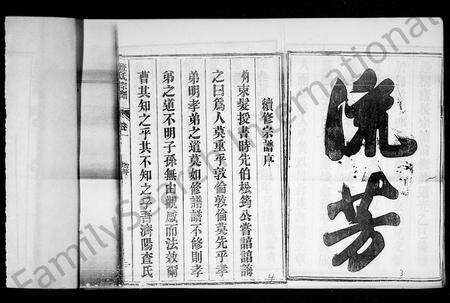 流芳
續修宗譜序
束髮授書時先伯松筠公嘗諄諄誨
之曰爲人莫重乎敦倫敦倫莫先乎孝
弟明孝弟之道莫如修譜譜不修則孝
弟之道不明子孫無由觀感而法效爾
曹其知之乎其不知之乎吾濟陽查氏
FamilySearch International
3
4